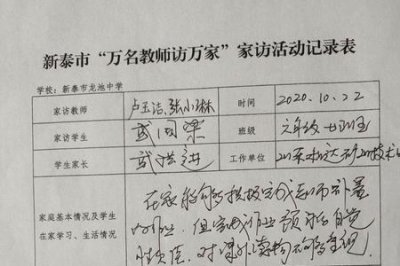 新泰市“万名教师访万家”家访活动记录表
学校：新泰市龙池中学
家访教师 卢玉洁、张小琳 时间 2020.10.22
家访学生 武国梁 班级 六年级
学生家长 武洪进 工作单位
家庭基本情况及学生
在家学习、生活情况
在家能够积极完成老师布置
作业，但完成作业预习自觉
性较差，对课外读物不够重视。